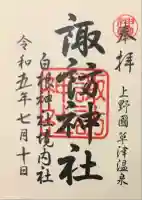 奉拝
上野國草津温泉
諏訪神社
白根神社境内社
令和五年七月十日